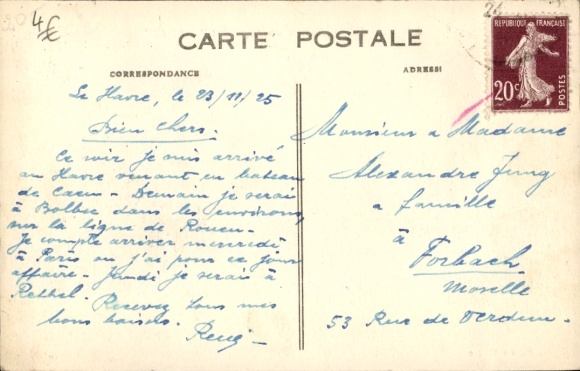 4€
CARTE POSTALE
CORRESPONDANCE
ADRESSE
RÉPUBLIQUE FRANÇAISE
20c
POSTES
Le Havre, le 23/11/25
Bien chers.
Ce soir je suis arrivé
au Havre venant en bateau
de Caen - Demain je serai
à Bolbec dans les environs,
sur la ligne de Rouen -
Je compte arriver mercredi
à Paris où j'ai pour ce jour
affaire - Jeudi je serais à
Rethel.
Recevez tous mes
bons baisers.
Monsieur & Madame
Alexandre Jung
& famille
à
Forbach
Moselle
53 Rue de Verdun -